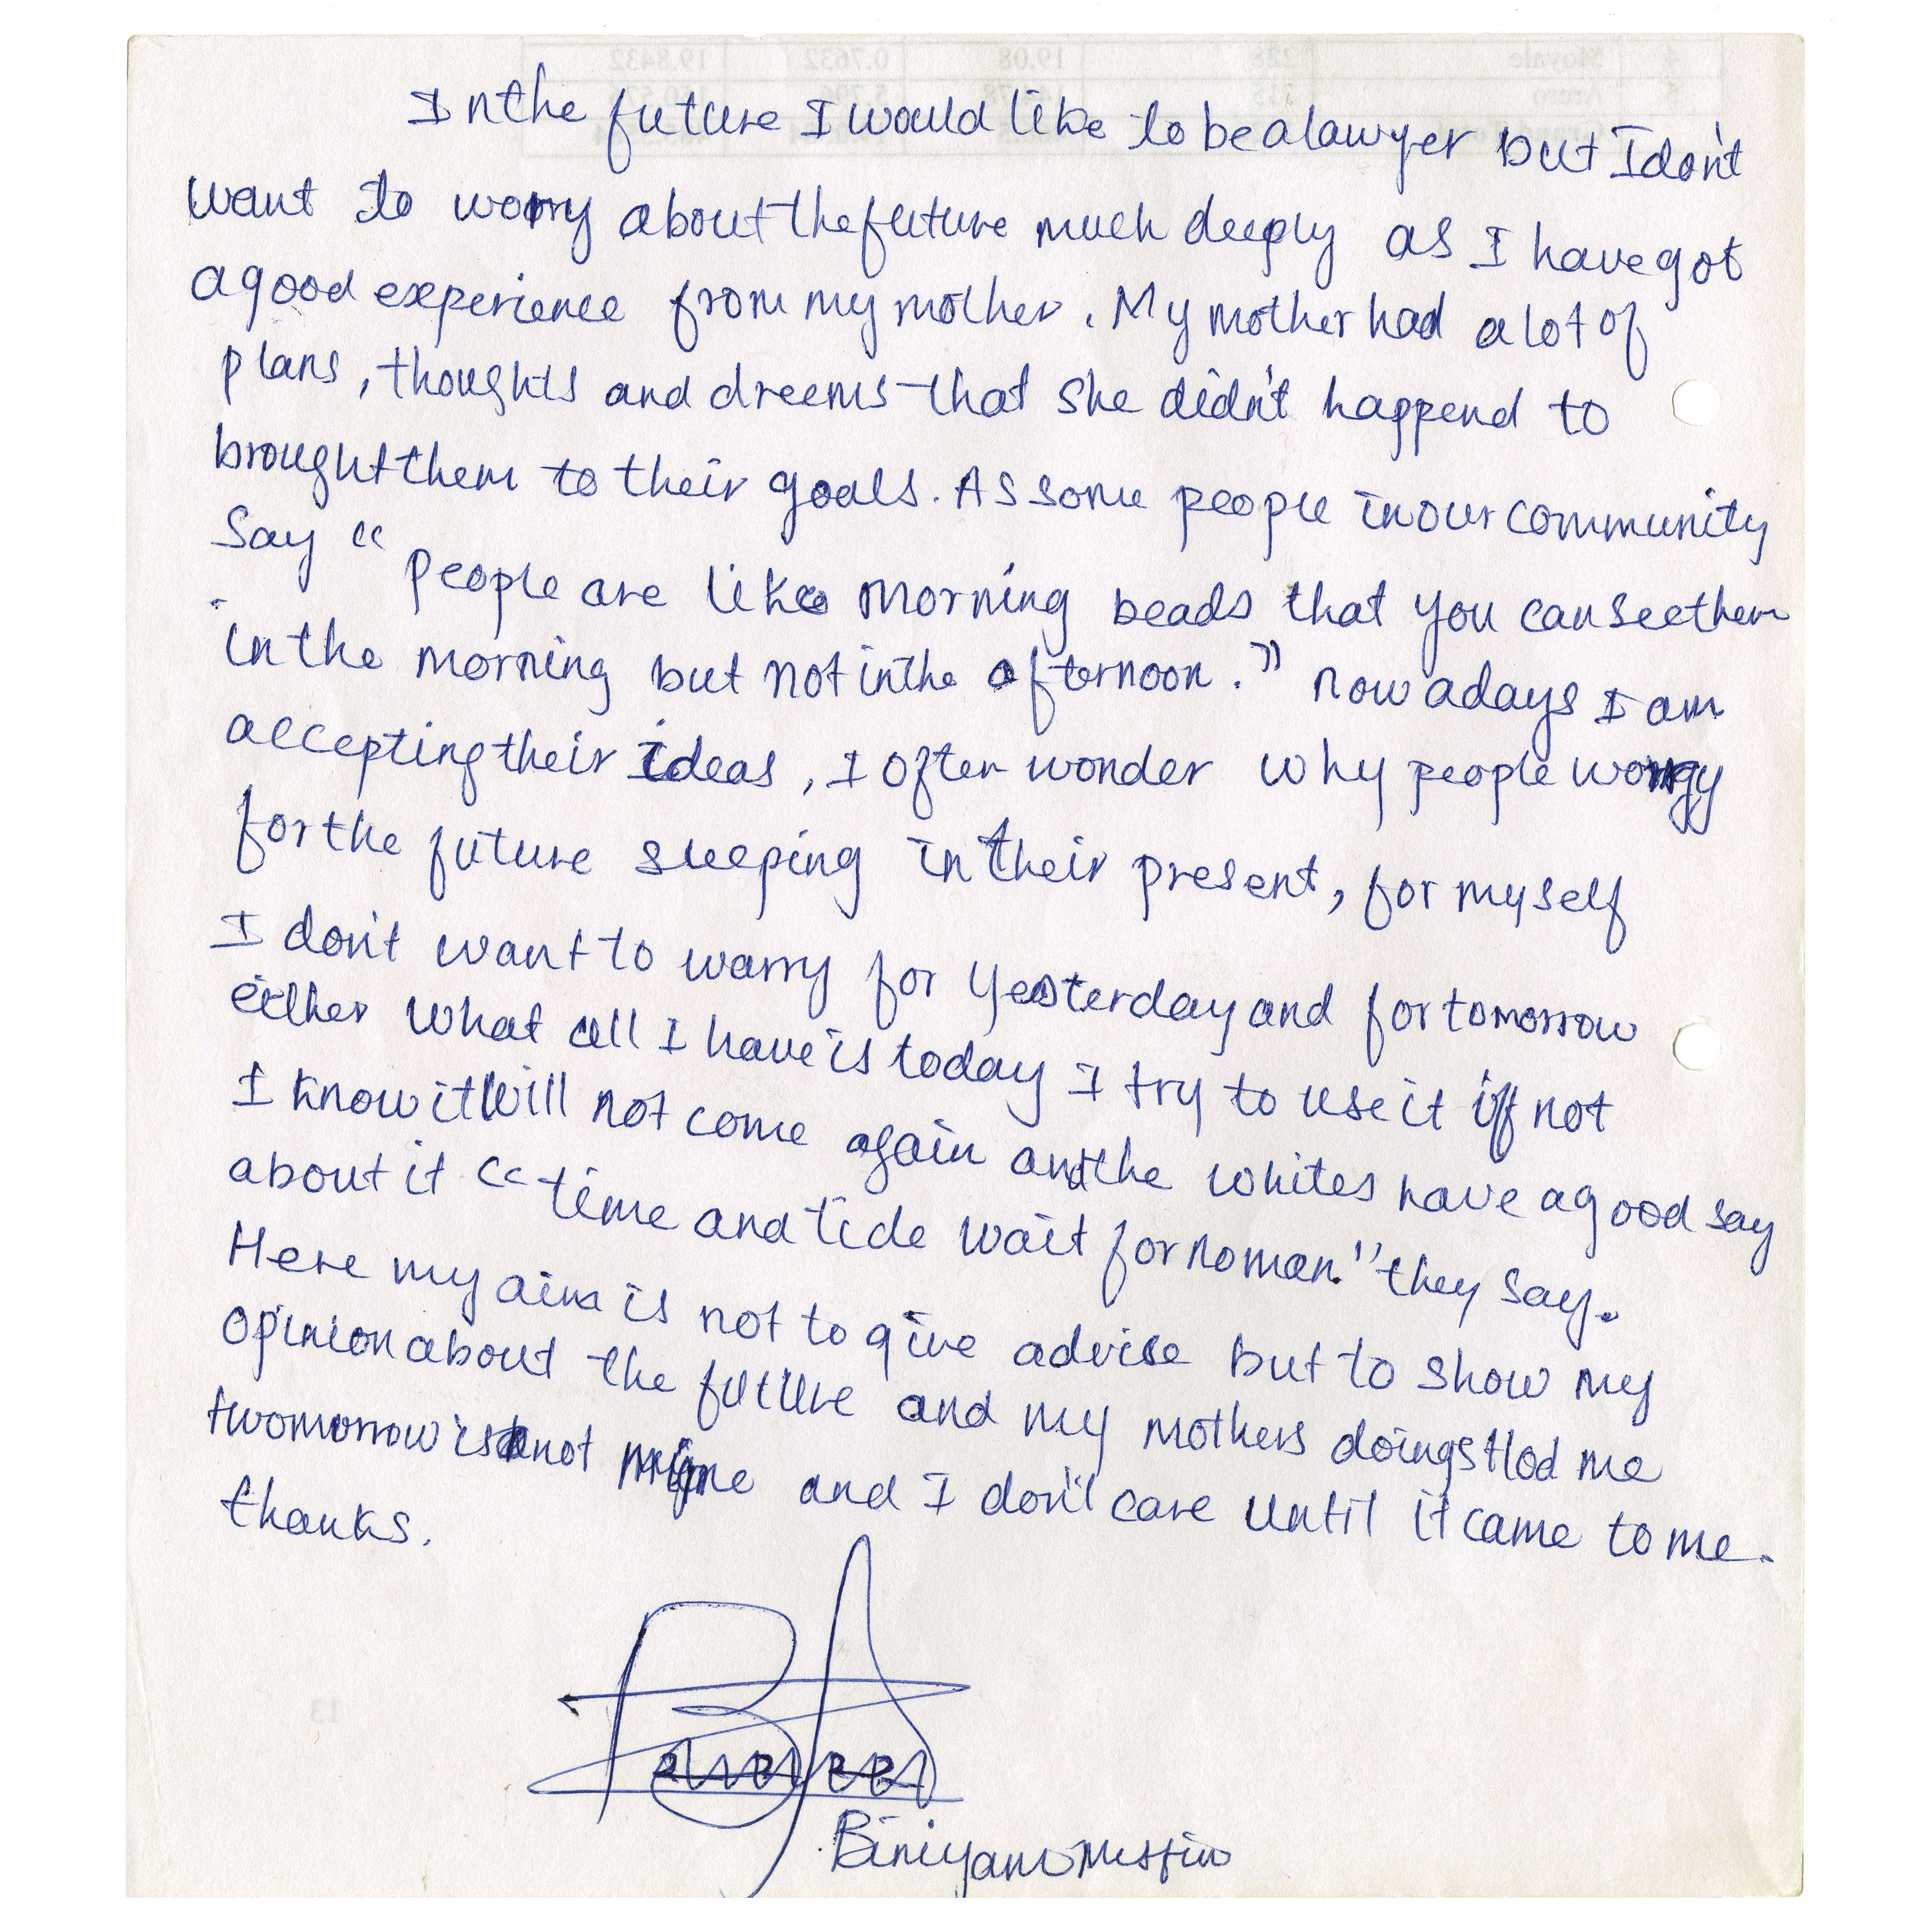 In the future I would like to be a lawyer but I don't
want to worry about the future much deeply as I have got
a good experience from my mother. My mother had a lot of
plans, thoughts and dreems that she didn't happend to
brought them to their goals. As some people in our community
Say "people are like morning beads that you can see them
in the morning but not in the afternoon." now adays I am
accepting their ideas, I often wonder why people worry
for the future sleeping in their present, for myself
I don't want to warry for yesterday and for tomorrow
either what all I have is today I try to use it if not
I know it will not come again and the whites have a good say
about it "time and tide wait for no man." they say.
Here my aim is not to give advise but to show my
opinion about the future and my mothers doings tlod me
twomorrow is not mine and I don't care until it came to me.
thanks.
Biniyam Mesfin
4 Moyale 19.08 0.7632 19.8432
5 Arero
13